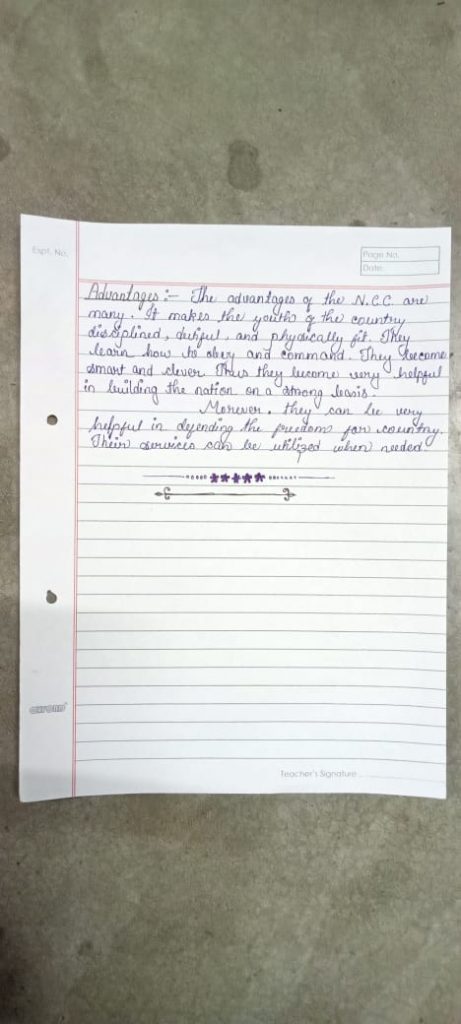 Expt. No.
Page No.
Date
Advantages :- The advantages of the N.C.C. are
many. It makes the youths of the country
disciplined, dutiful, and physically fit. They
learn how to obey and command. They become
smart and clever. Thus they become very helpful
in building the nation on a strong basis.
Morever, they can be very
helpful in defending the freedom for country.
Their services can be utilized when needed.
OXFORD
Teacher's Signature